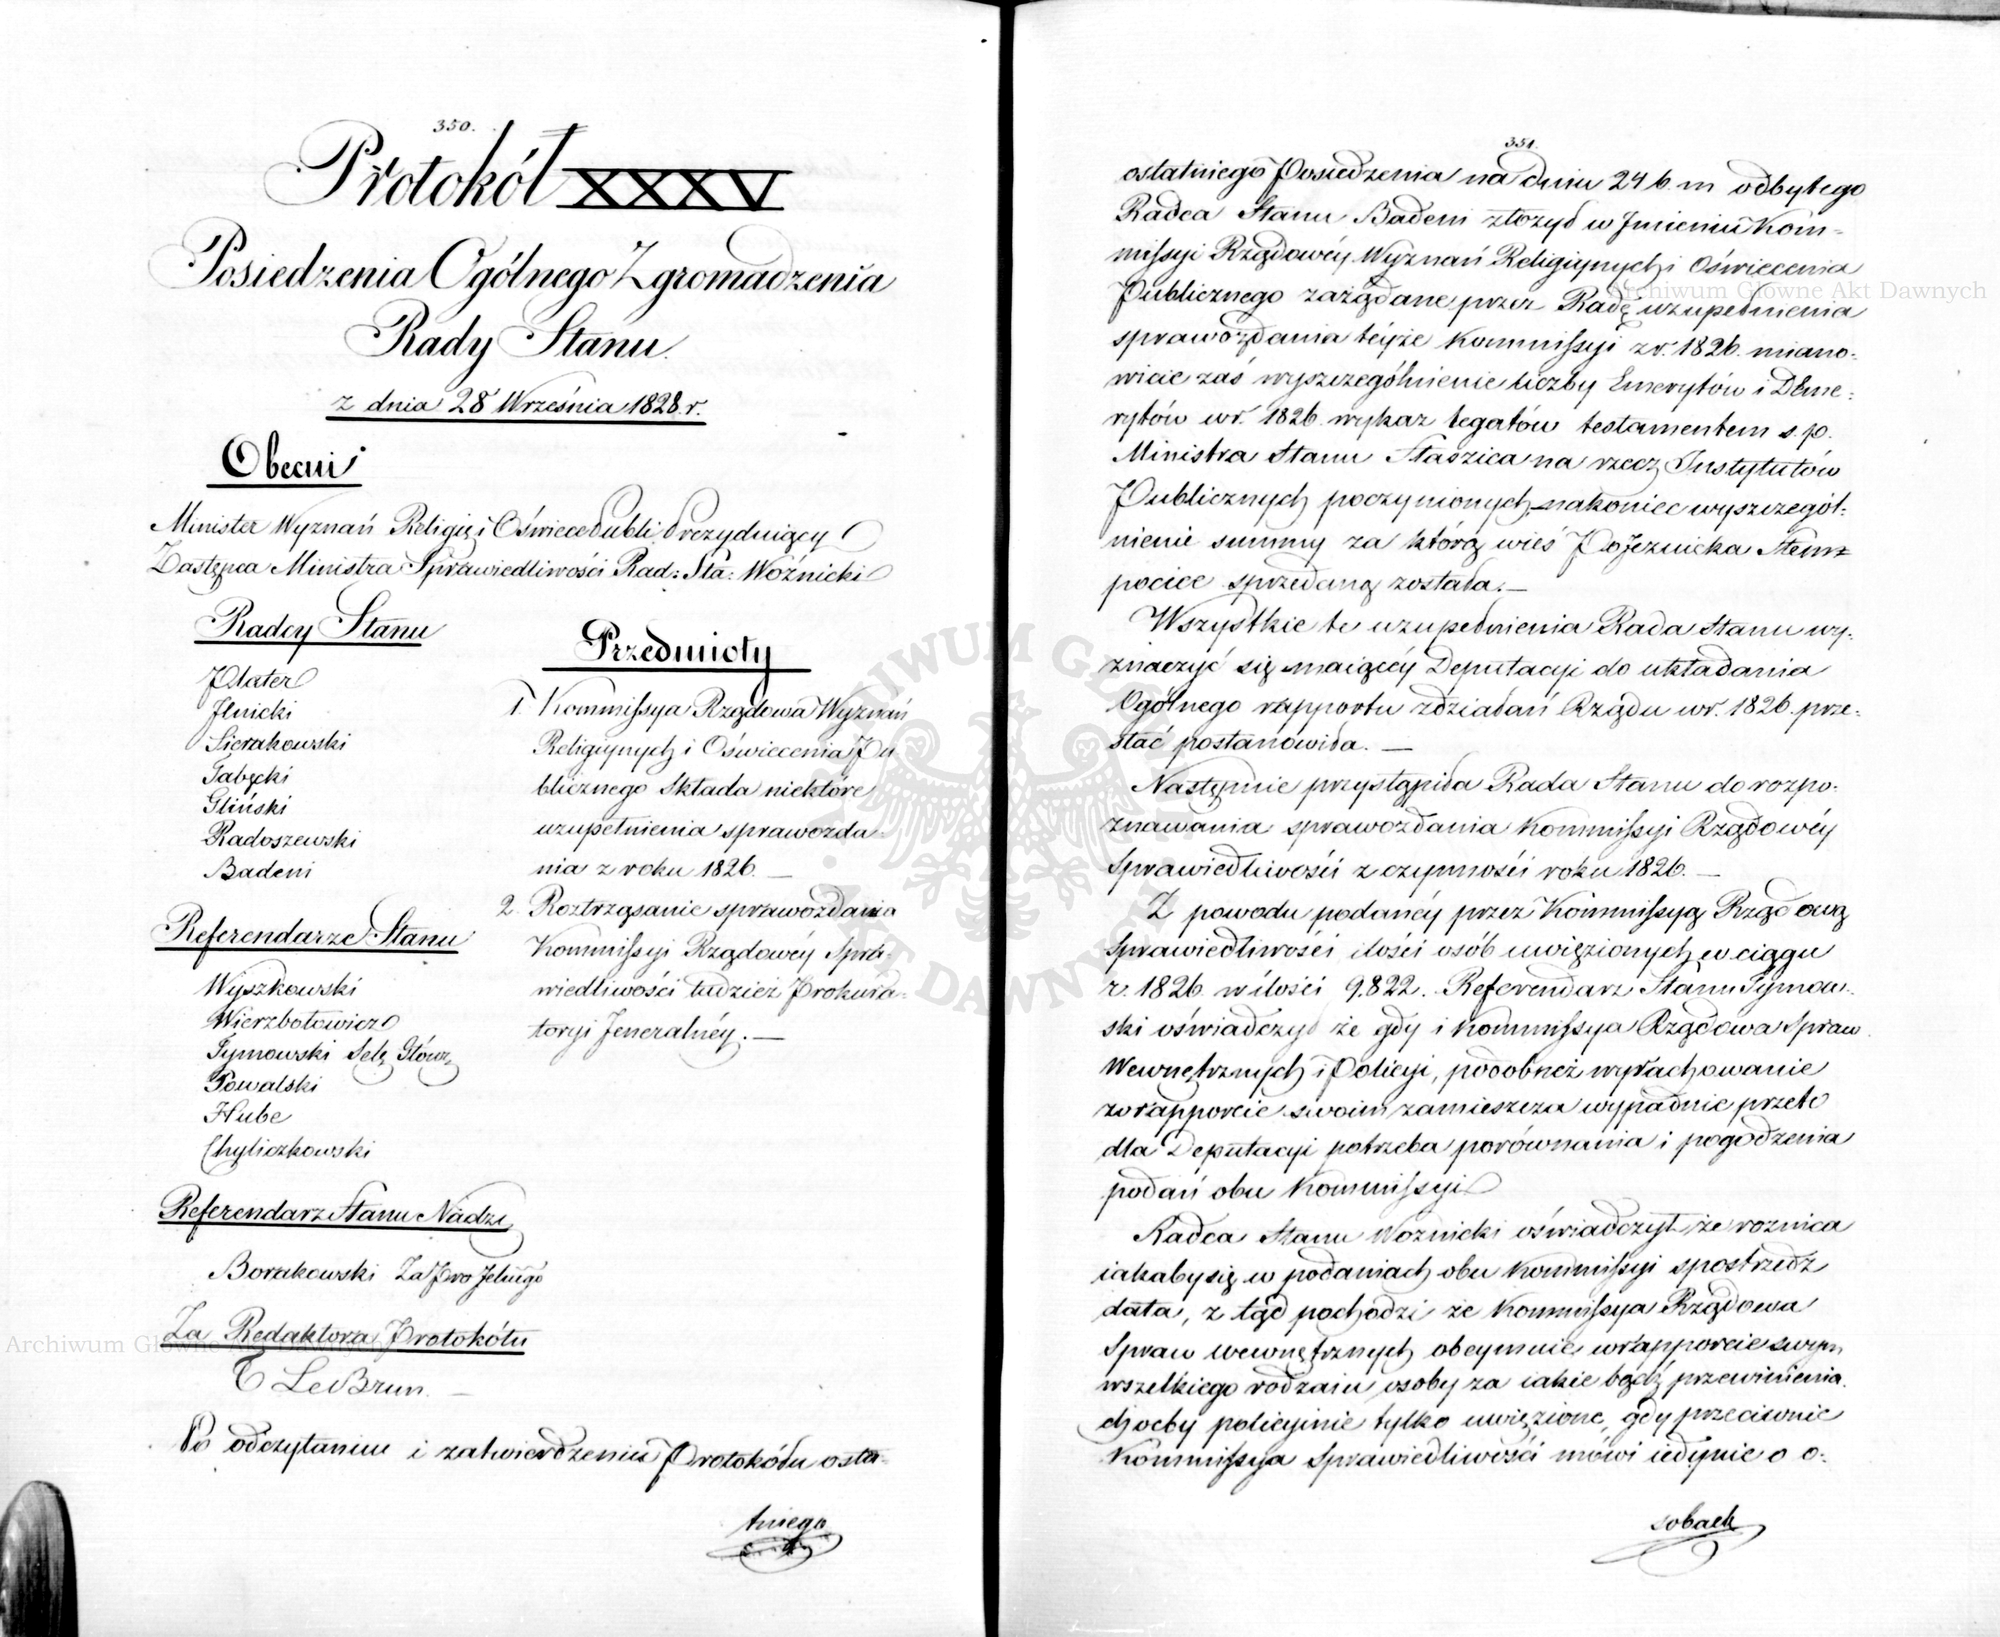 350.
Protokół XXXV
Posiedzenia Ogólnego Zgromadzenia
Rady Stanu.
z dnia 28 Września 1828. r.
Obecni
Minister Wyznań Religii i Oświece Publi: Prezydujący
Zastępca Ministra Sprawiedliwości Rad: Sta: Woźnicki
Radcy Stanu
Plater
Jlnicki
Sierakowski
Tabęcki
Gliński
Radoszewski
Badeni
Referendarze Stanu
Wyszkowski
Wierzbołowicz
Tymowski Sek Głów
Powalski
Hube
Chyliczkowski
Referendarz Stanu Nadz:
Borakowski Za Pro Jelnego
Za Redaktora Protokółu
T LeBrun. —
Przedmioty
1. Kommissya Rządowa Wyznań
Religiynych i Oświecenia Pu
blicznego Składa niektóre
uzupełnienia sprawozda-
nia z roku 1826. —
2. Roztrząsanie sprawozdania
Kommissyi Rządowéy Spra-
wiedliwości tudzież Prokura-
toryi Jeneralnéy. —
Po odczytaniu i zatwierdzeniu Protokółu osta-
tniego
351.
ostatniego Posiedzenia na dniu 24 b. m odbytego
Radca Stanu Badeni złożył w Jmieniu Kom-
missyi Rządowéy Wyznań Religiynych i Oświecenia
Publicznego zażądane przez Radę uzupełnienia
sprawozdania téyże Kommissyi z r. 1826. miano-
wicie zaś wyszczególnienie liczby Emerytów i Deme-
rytów w r. 1826. wykaz legatów testamentem s. p.
Ministra Stanu Staszica na rzecz Instytutów
Publicznych poczynionych, nakoniec wyszczegól-
nienie summy za którą wieś Pojeznicka
pociee sprzedaną została. —
Wszystkie te uzupełnienia Rada Stanu wy-
znaczyć się maiącéy Deputacyi do układania
Ogólnego rapportu z działań Rządu w r. 1826. prze-
słać postanowiła. —
Następnie przystąpiła Rada Stanu do rozpo-
znawania sprawozdania Kommissyi Rządowéy
Sprawiedliwości z czynności roku 1826. —
Z powodu podanéy przez Kommissyą Rządową
Sprawiedliwości, ilości osób uwięzionych w ciągu
r. 1826. w ilości 9.822. Referendarz Stanu Tymow-
ski oświadczył że gdy i Kommissya Rządowa Spraw
Wewnętrznych i Policyi, podobneż wyrachowanie
w rapporcie swoim zamieszcza wypadnie przeto
dla Deputacyi potrzeba porównania i pogodzenia
podań obu Kommissyi
Radca Stanu Woznicki oświadczył, że roznica
iakaby się w podaniach obu Kommissyi spostrzedz
data, z tąd pochodzi że Kommissya Rządowa
Spraw wewnętrznych obeymuie w rapporcie swym
wszelkiego rodzaiu osoby za iakie bądź przewinienia
choćby policyinie tylko uwięzione, gdy przeciwnie
Kommissya Sprawiedliwości mówi iedynie o o-
sobach
Archiwum Główne Akt Dawnych
Archiwum Główne Akt Dawnych
ARCHIWUM GŁÓWNE · AKT DAWNYCH ·